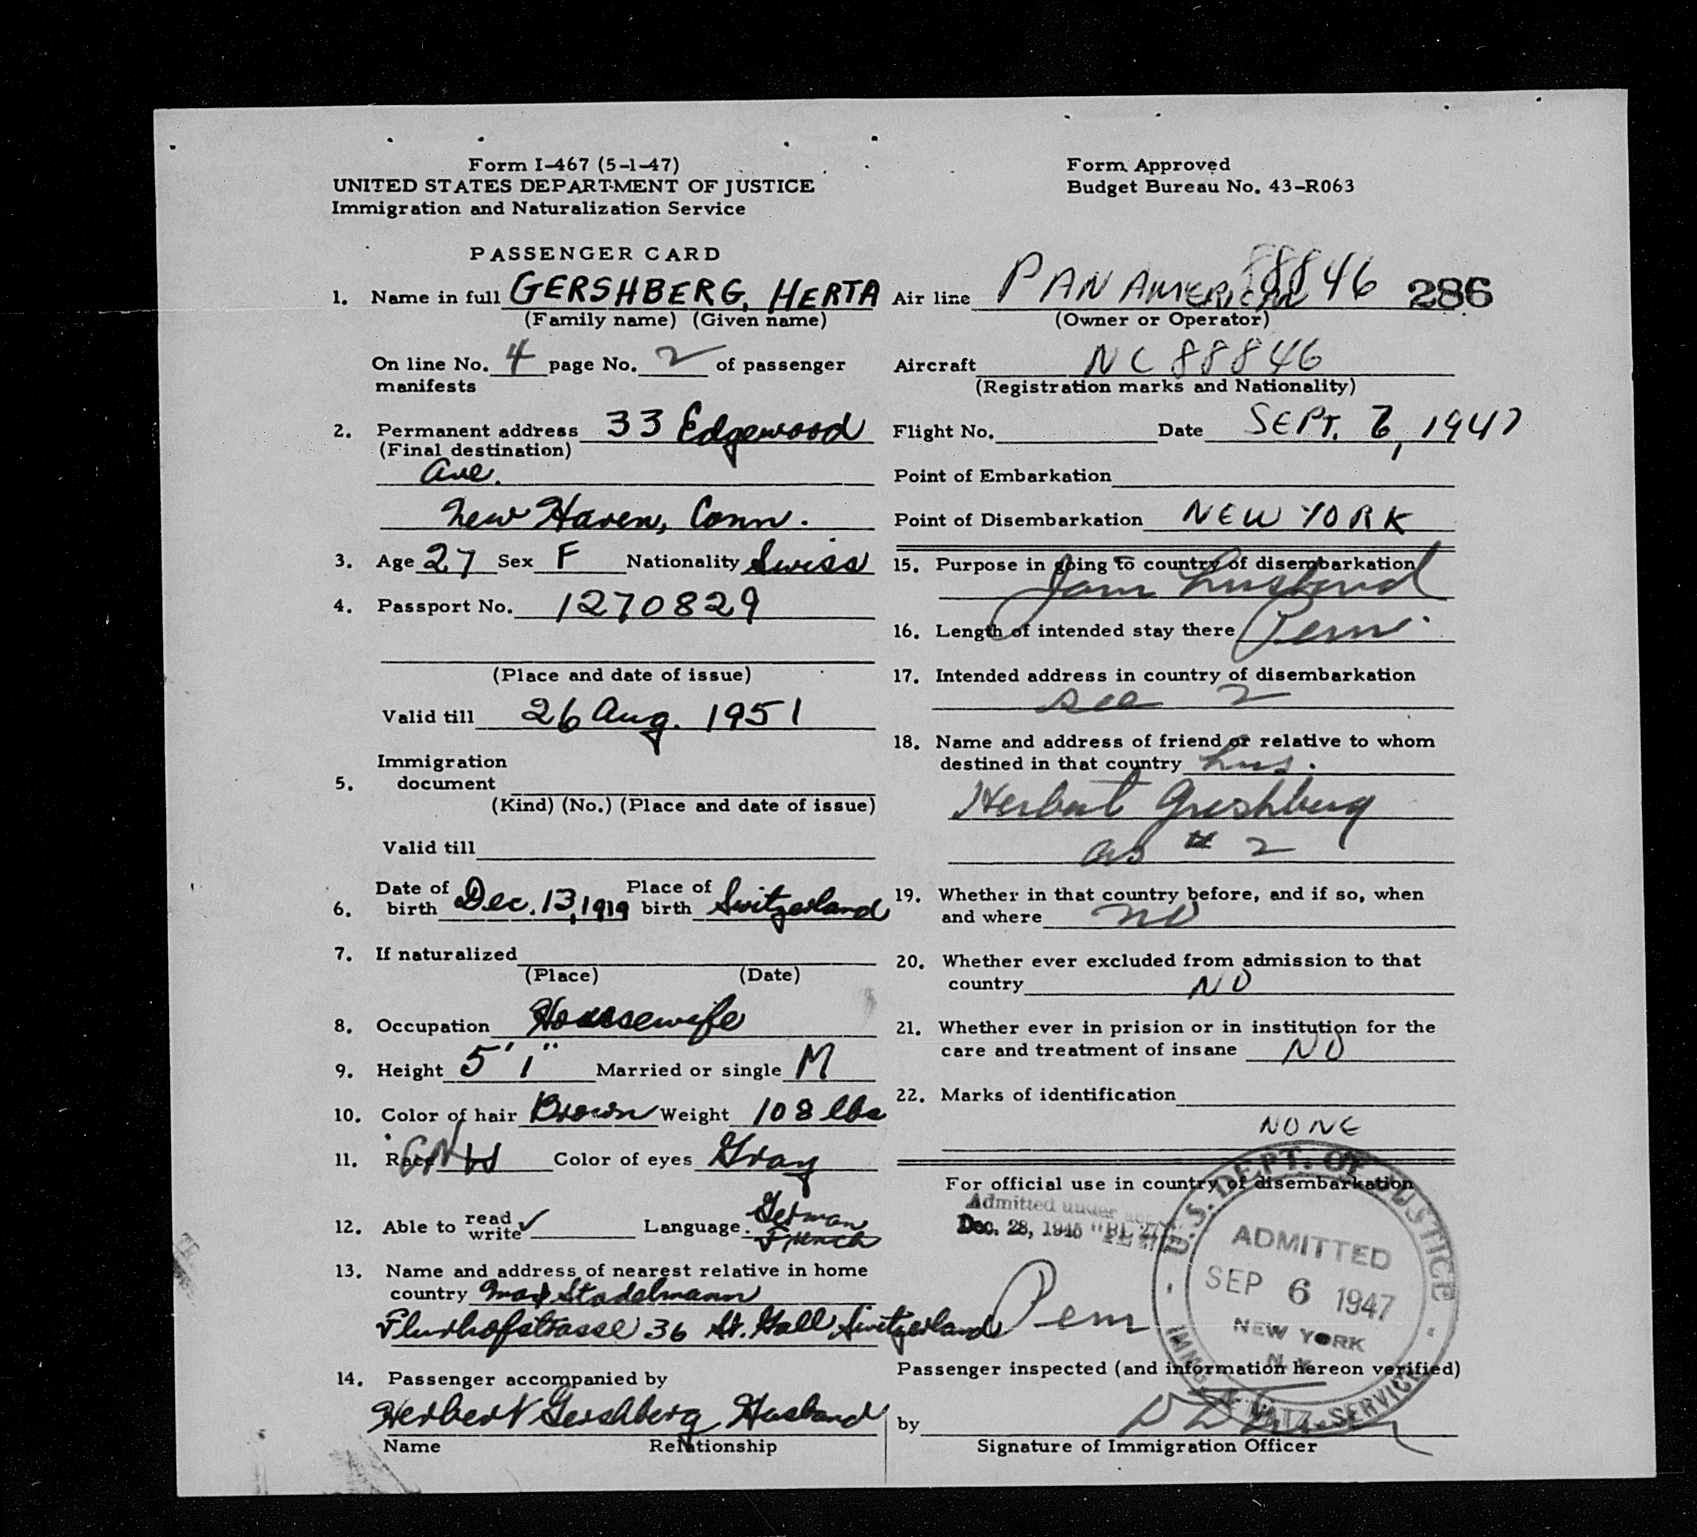 Form I-467 (5-1-47)
UNITED STATES DEPARTMENT OF JUSTICE
Immigration and Naturalization Service
Form Approved
Budget Bureau No. 43-R063
PASSENGER CARD
1. Name in full GERSHBERG, HERTA
(Family name) (Given name)
On line No. 4 page No. 2 of passenger
manifests
2. Permanent address 33 Edgewood
(Final destination)
Ave.
New Haven, Conn.
3. Age 27 Sex F Nationality Swiss
4. Passport No. 1270829
(Place and date of issue)
Valid till 26 Aug. 1951
Immigration
5. document
(Kind) (No.) (Place and date of issue)
Valid till
6. Date of birth Dec. 13, 1919 Place of birth Switzerland
7. If naturalized
(Place) (Date)
8. Occupation Housewife
9. Height 5' 1" Married or single M
10. Color of hair Brown Weight 108 lbs
11. Race W Color of eyes Gray
12. Able to read write ✓ Language German
French
13. Name and address of nearest relative in home
country Max Stadelmann
Flurhofstrasse 36 St. Gall, Switzerland
14. Passenger accompanied by
Herbert Gershberg Husband
Name Relationship
Air line PAN AMERICAN 88846 286
(Owner or Operator)
Aircraft NC 88846
(Registration marks and Nationality)
Flight No. Date SEPT. 6, 1947
Point of Embarkation
Point of Disembarkation NEW YORK
15. Purpose in going to country of disembarkation
Join husband
16. Length of intended stay there Perm.
17. Intended address in country of disembarkation
see 2
18. Name and address of friend or relative to whom
destined in that country hus.
Herbert Greshberg
as # 2
19. Whether in that country before, and if so, when
and where no
20. Whether ever excluded from admission to that
country NO
21. Whether ever in prision or in institution for the
care and treatment of insane NO
22. Marks of identification
NONE
For official use in country of disembarkation
Admitted under
Dec. 28, 1945
Perm
U.S. DEPT. OF JUSTICE
ADMITTED
SEP 6 1947
NEW YORK
N.Y.
IMMIG. & NATZ. SERVICE
Passenger inspected (and information hereon verified)
by
Signature of Immigration Officer